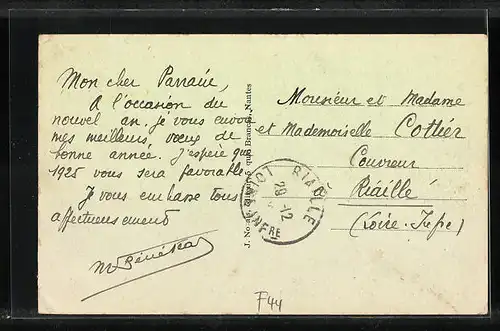 Mon cher Parrain,
A l'occasion du
nouvel an. je vous envoie
mes meilleurs vœux de
bonne année. J'espère que
1925 vous sera favorable
Je vous embrasse tous
affectueusement
Monsieur et Madame
et Mademoiselle Cottier
Couvreur
Riaillé
(Loire-Infre)
RIAILLÉ
29-12
INFRE
J. Nozais, Nantes
F44